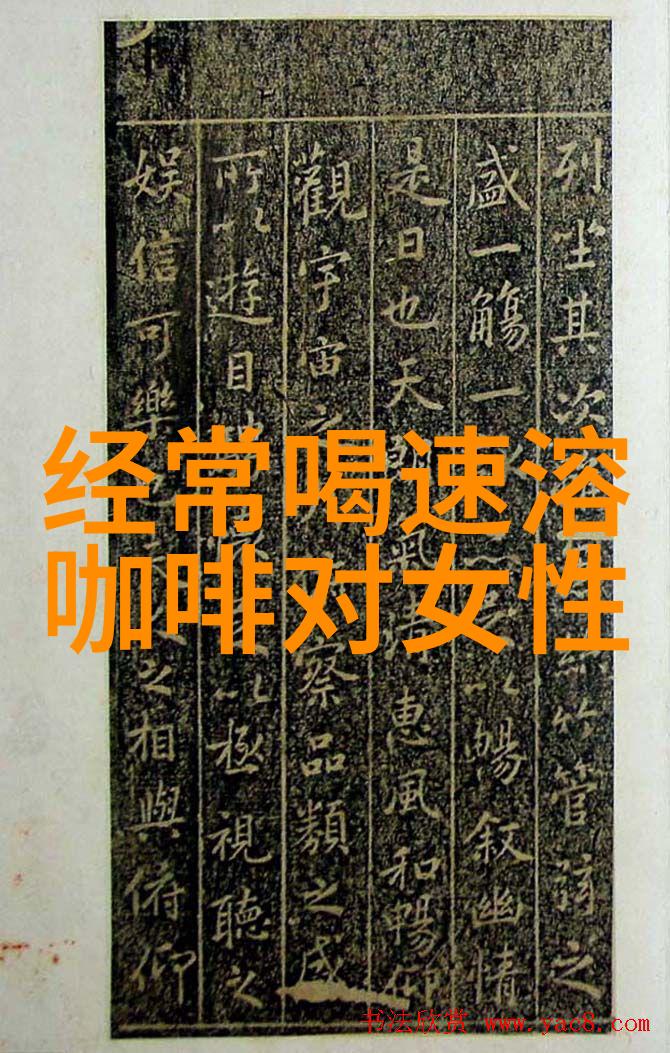 列坐其次絲竹管弦之
盛一觴一以暢叙幽情
是日也天朗氣清惠風和暢仰
觀宇宙之察品類之盛
所以遊目以極視聽之
娱信可樂之相與俯仰
经常喝速溶
咖啡对女性
书法欣赏 www.yac8.com